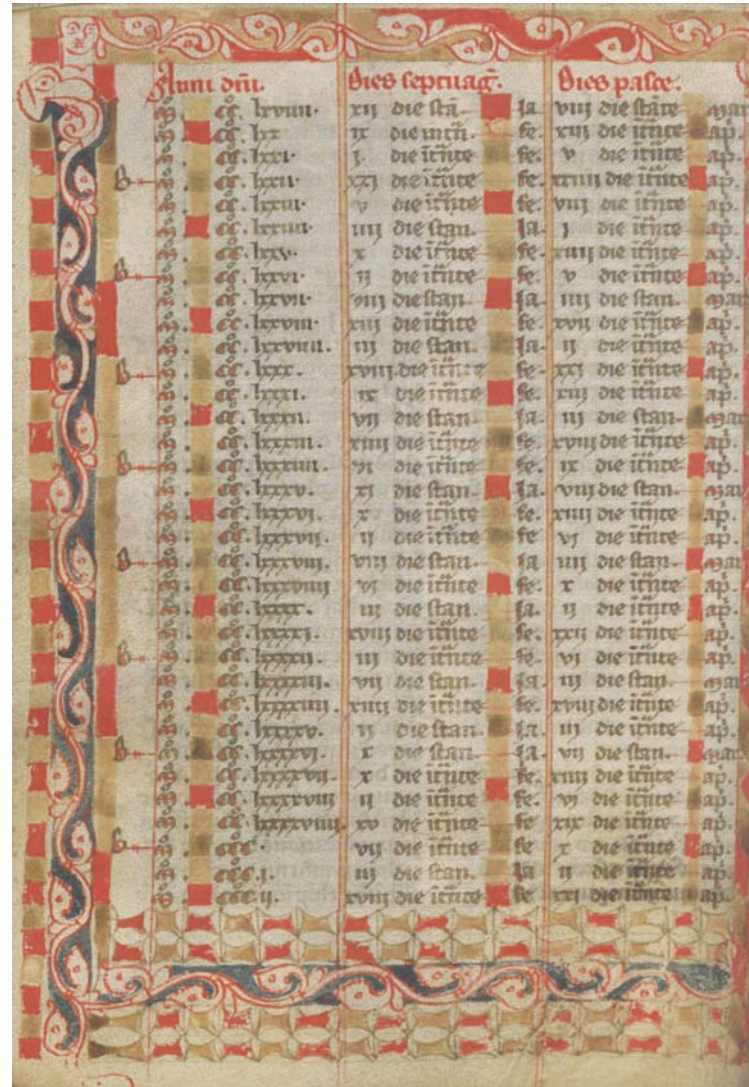 Anni dñi. Dies septuag̃. Dies pasce.
m̊. cc̊. lxviiii. xii die stañ ia viii die stãte mar
m̊. cc̊. lxx ix die intñ fe. xiii die itñte ap̃.
m̊. cc̊. lxxi. i. die itñte fe. v die itñte ap̃.
B m̊. cc̊. lxxii. xxi die itñte fe. xxiiii die itñte ap̃.
m̊. cc̊. lxxiii. v die itñte fe. viii die itñte ap̃.
m̊. cc̊. lxxiiii. iiii die stan. ia. i die itñte ap̃.
m̊. cc̊. lxxv. x die itñte fe. xiiii die itñte ap̃.
B m̊. cc̊. lxxvi. ii die itñte fe. v die itñte ap̃.
m̊. cc̊. lxxvii. viii die stan. ia. iiii die stan. mar
m̊. cc̊. lxxviii. xiii die itñte fe. xvii die itñte ap̃.
m̊. cc̊. lxxviiii. iii die stan. ia. ii die itñte ap̃.
B m̊. cc̊. lxxx. xviii die itñte fe. xxi die itñte ap̃.
m̊. cc̊. lxxxi. ix die itñte fe. xiii die itñte ap̃.
m̊. cc̊. lxxxii. vii die stan. ia. iii die stan. mar
m̊. cc̊. lxxxiii. xiiii die itñte fe. xviii die itñte ap̃.
B m̊. cc̊. lxxxiiii. vi die itñte fe. ix die itñte ap̃.
m̊. cc̊. lxxxv. xi die stan. ia. viii die stan. mar
m̊. cc̊. lxxxvi. x die itñte fe. xiiii die itñte ap̃.
m̊. cc̊. lxxxvii. ii die itñte fe. vi die itñte ap̃.
B m̊. cc̊. lxxxviii. viii die stan. ia iiii die stan. mar
m̊. cc̊. lxxxviiii vi die itñte fe. x die itñte ap̃.
m̊. cc̊. lxxxx. iii die stan. ia. ii die itñte ap̃.
m̊. cc̊. lxxxxi. xviii die itñte fe. xxii die itñte ap̃.
B m̊. cc̊. lxxxxii. iii die itñte fe. vi die itñte ap̃.
m̊. cc̊. lxxxxiii. vii die stan. ia. iii die stan. mar
m̊. cc̊. lxxxxiiii. xiiii die itñte fe. xviii die itñte ap̃.
m̊. cc̊. lxxxxv. ii die stan. ia. iii die itñte ap̃.
B m̊. cc̊. lxxxxvi. x die stan. ia. vii die stan. mar
m̊. cc̊. lxxxxvii. x die itñte fe. xiiii die itñte ap̃.
m̊. cc̊. lxxxxviii ii die itñte fe. vi die itñte ap̃.
m̊. cc̊. lxxxxviiii. xv die itñte fe. xix die itñte ap̃.
B m̊. ccc̊. vii die itñte fe. x die itñte ap̃.
m̊. ccc̊. i. iii die stan. ia ii die itñte ap̃.
m̊. ccc̊. ii. xviii die itñte fe xxi die itñte ap̃.